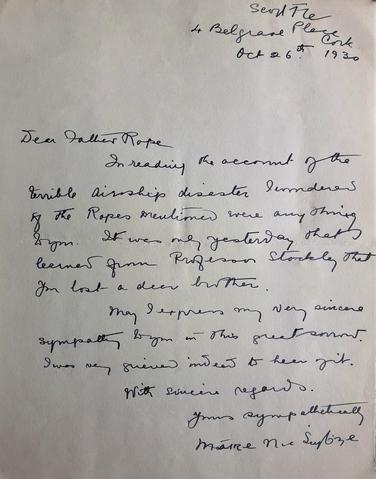 Scoil Íte
4 Belgrave Place
Cork
Oct 26th. 1930
Dear Father Rope
In reading the account of the
terrible airship disaster I wondered
if the Ropes mentioned were any thing
to you. It was only yesterday that I
learned from Professor Stockley that
you lost a dear brother.
May I express my very sincere
sympathy to you in this great sorrow.
I was very grieved indeed to hear of it.
With sincere regards.
Yours sympathetically
Máire Nic